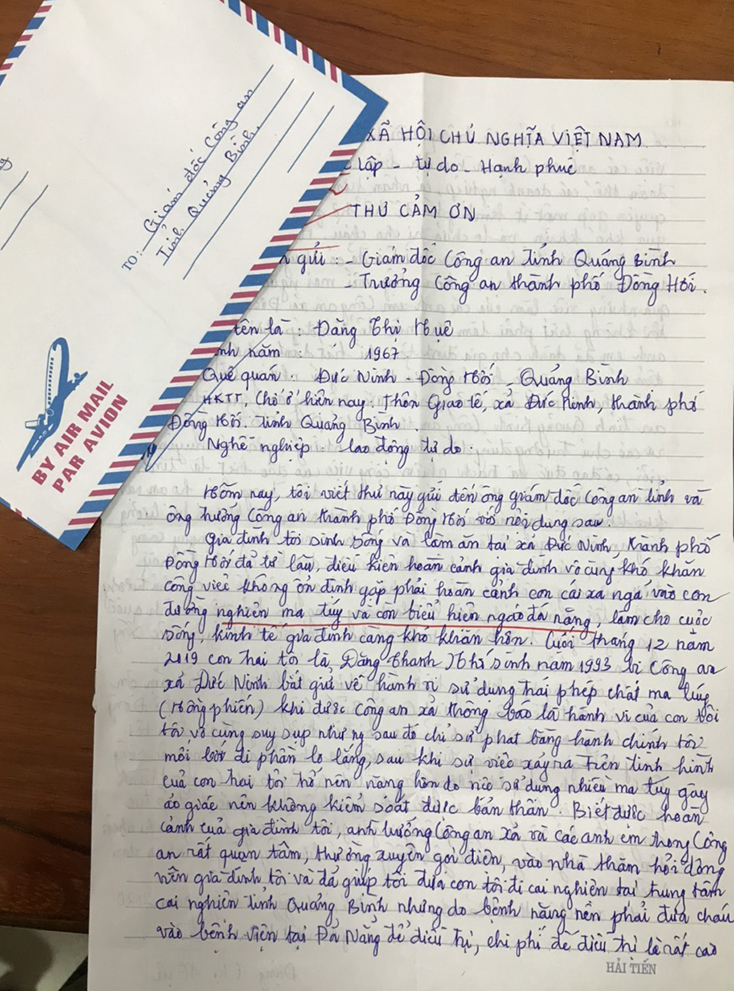 TO: Giám đốc Công an
Tỉnh Quảng Bình
BY AIR MAIL
PAR AVION
XÃ HỘI CHỦ NGHĨA VIỆT NAM
lập - tự do - Hạnh phúc
THƯ CẢM ƠN
gửi : - Giám đốc Công an tỉnh Quảng Bình
- Trưởng Công an thành phố Đồng Hới.
tên là : Đặng Thị Huệ
năm : 1967
Quê quán : Đức Ninh - Đồng Hới - Quảng Bình
HKTT, Chỗ ở hiện nay : Thôn Giao tế, xã Đức Ninh, thành phố
Đồng Hới. tỉnh Quảng Bình.
Nghề nghiệp lao động tự do.
Hôm nay, tôi viết thư này gửi đến ông giám đốc Công an tỉnh và
ông trưởng Công an thành phố Đồng Hới với nội dung sau.
Gia đình tôi sinh sống và làm ăn tại xã Đức Ninh, thành phố
Đồng Hới đã từ lâu, điều kiện hoàn cảnh gia đình vô cùng khó khăn
công việc không ổn định gặp phải hoàn cảnh con cái xa ngã vào con
đường nghiện ma túy và còn biểu hiện ngáo đá nặng, làm cho cuộc
sống, kinh tế gia đình càng khó khăn hơn. Cuối tháng 12 năm
2019 con trai tôi là, Đặng Thanh Nhã sinh năm 1993 bị Công an
xã Đức Ninh bắt giữ về hành vi sử dụng trái phép chất ma túy
(Hồng phiến) khi được Công an xã thông báo là hành vi của con tôi
tôi vô cùng suy sụp nhưng sau đó chỉ xử phạt bằng hành chính tôi
mới bớt đi phần lo lắng, sau khi sự việc xảy ra trên tình hình
của con trai tôi trở nên nặng hơn do nó sử dụng nhiều ma túy gây
ảo giác nên không kiểm soát được bản thân. Biết được hoàn
cảnh của gia đình tôi, anh trưởng Công an xã và các anh em trong Công
an rất quan tâm, thường xuyên gọi điện, vào nhà thăm hỏi động
viên gia đình tôi và đã giúp tôi đưa con tôi đi cai nghiện tại trung tâm
cai nghiện tỉnh Quảng Bình nhưng do bệnh nặng nên phải đưa cháu
vào bệnh viện tại Đà Nẵng để điều trị, chi phí để điều trị là rất cao
HẢI TIẾN